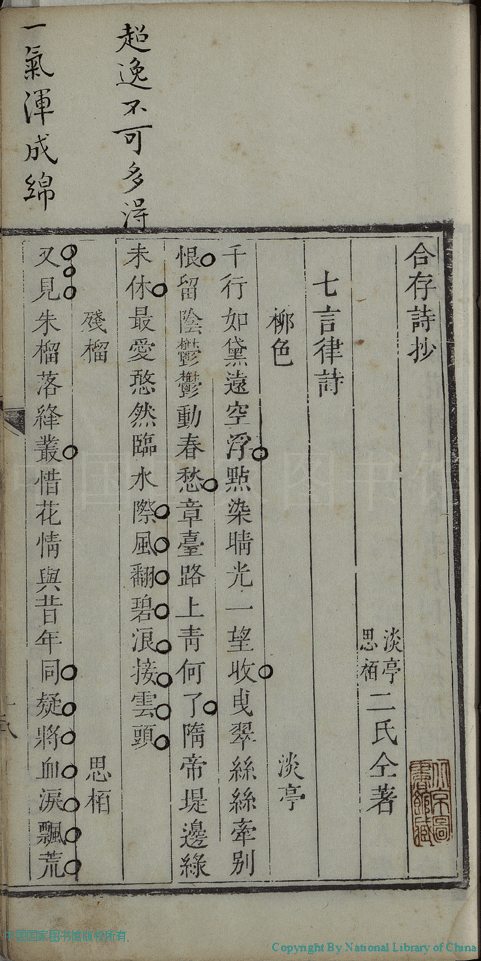 超逸不可多得
一氣渾成綿
合存詩抄
淡亭
思栢
二氏仝著
七言律詩
柳色
淡亭
千行如黛遠空浮點染晴光一望收曳翠絲絲牽别
恨留陰鬱鬱動春愁章臺路上靑何了隋帝堤邊綠
未休最愛憨然臨水際風翻碧浪接雲頭
殘榴
思栢
又見朱榴落絳叢惜花情與昔年同疑將血淚飄荒
Copyright By National Library of China